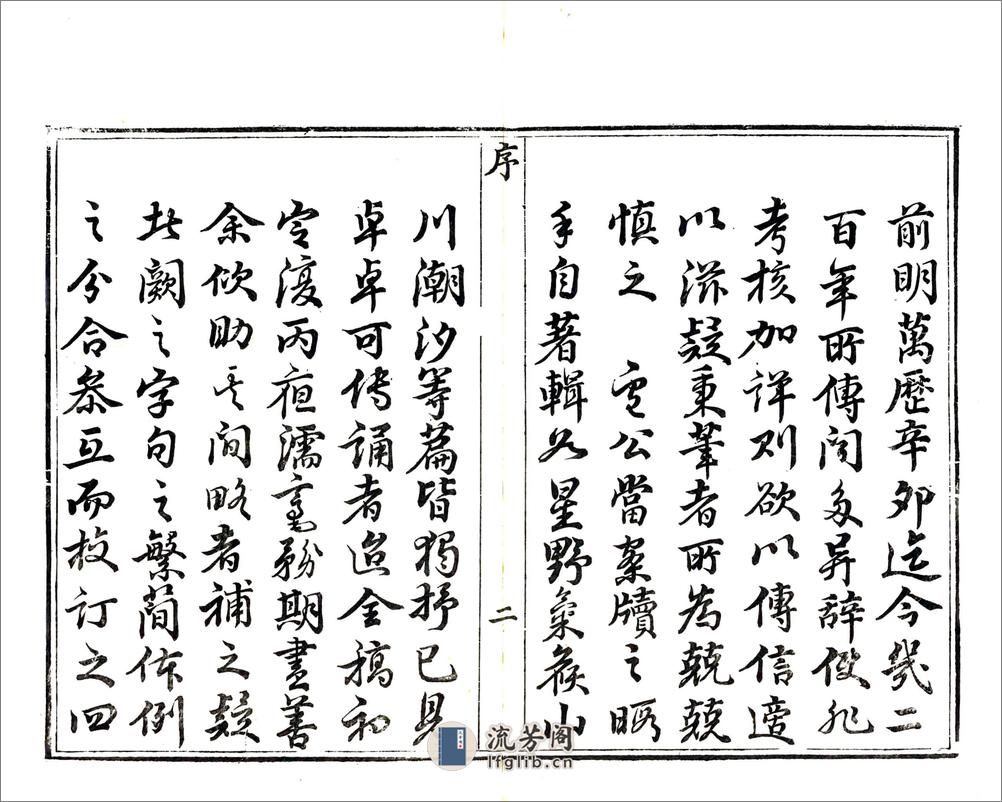 前明萬歷辛夘迄今幾二
百年所傳聞多异辭倘非
考核加詳則欲以傳信適
以滋疑秉筆者所為兢兢
慎之 公當案牘之暇
手自著輯如星野氣候山
序
二
川潮汐等篇皆獨抒已見
卓卓可傳誦者迨全稿初
定復丙夜濡毫務期盡善
余欣助其間略者補之疑
者闕之字句之繁蕳体例
之分合叅互而校訂之四
流芳阁
lfglib.cn